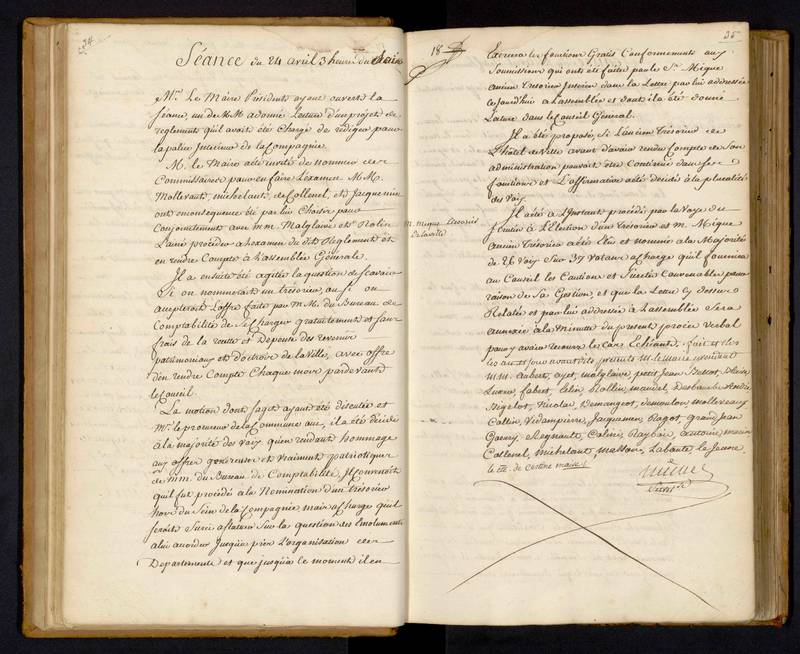 34
Séance du 24 avril 3 heures du Soir
Mr. Le Maire Président ayant ouvert la
Séance, un de MM. a donné Lecture d'un projet de
reglement qu'il avait été Chargé de rediger pour
la police Interieure de la Compagnie.
M. le Maire a été invité de nommer des
Commissaires pour en faire L'examen MM.
Mollevaut, michelant, de Collenel, et Jacquemin
ont en consequence été par lui Choisis pour
Conjointement avec mm. Malglaive et Rolin
L'ainé proceder a L'examen du dit Reglement et
en rendre Compte à L'assemblée Générale.
Il a ensuite été agitée la question de Scavoir
Si on nommerait un trésorier, ou Si on
accepteroit L'offre faite par MM. du Bureau de
Comptabilité de Se Charger gratuitement et Sans
frais de la recette et Depense des revenus
patrimoniaux et d'octrois de la Ville, avec offre
d'en rendre Compte Chaque mois pardevant
le Conseil
La motion dont s'agit ayant été discutée et
Mr. le procureur de la Commune oui, il a été décidé
a la majorité des Voix qu'en rendant hommage
aux offres genereuses et vraiment patriotiques
de mm. du Bureau de Comptabilité, Il Convenoit
qu'il fut procédé à la Nomination d'un trésorier
hors du Sein de la Compagnie, mais a Charge qu'il
seroit Surcis a Statuer Sur la question des Emolumens
a lui accorder Jusqu'après L'organisation des
Departements et que jusqu'à ce moment il en
35
18
Exercera les fonctions Gratis Conformement aux
Soumissions qui ont été faites par le Sr. Mique
ancien Tresorier Inserées dans la Lettre par lui addressée
cejourd'hui a L'assemblée et dont il a été donné
Lecture dans le Conseil Général.
Il a été proposé, Si L'ancien Trésorier de
L'hôtel de Ville avant d'avoir rendu Compte de Son
administration pouvait être Continué dans Ses
fonctions et L'affirmative a été décidé à la pluralité
des Voix.
M. Mique Trésorier
de la ville
Il a été a L'Instant procédé par la Voye du
Scrutin à L'Election d'un Trésorier et m. Mique
ancien Trésorier a été Elu et nommé a la Majorité
de 26 Voix Sur 37 Votans a Charge qu'il fournira
au Conseil les Cautions et Suretés Convenables pour
raison de Sa Gestion, et que la Lettre Cy dessus
Relatée et par lui addressée à L'assemblée Sera
annexée a la Minutte du present procès verbal
pour y avoir recours les Cas Echeant. fait et clos
les an et jour avant dits présents M. le maire president
M.M. aubert, ayet, malglaive, petit Jean
Luxer, fabert, Rollin, manuel,
Nicolas, Demangeot, Mollevaux
Collin, Vidampierre, Jacquemin, Ragot, grand Jean
Regnault, antoine
Collenel, michelant, malhouet, Labaute le Jeune.